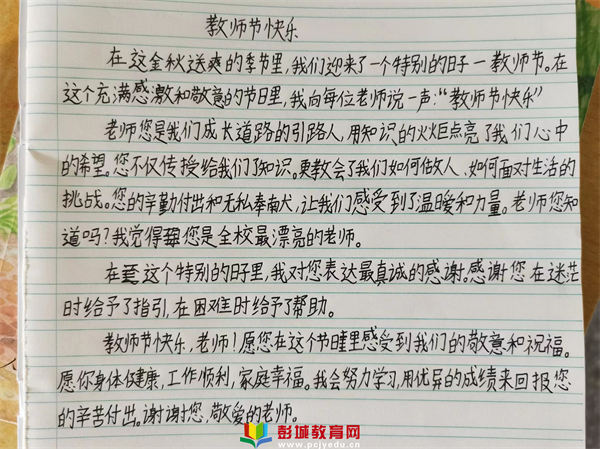 教师节快乐
在这金秋送爽的季节里,我们迎来了一个特别的日子一教师节。在
这个充满感激和敬意的节日里,我向每位老师说一声:“教师节快乐”
老师您是我们成长道路的引路人,用知识的火炬点亮了我们心中
的希望。您不仅传授给我们了知识。更教会了我们如何做人、如何面对生活的
挑战。您的辛勤付出和无私奉献,让我们感受到了温暖和力量。老师您知
道吗?我觉得您是全校最漂亮的老师。
在这个特别的日子里,我对您表达最真诚的感谢。感谢您在迷茫
时给予了指引,在困难时给予了帮助。
教师节快乐,老师!愿您在这个节日里感受到我们的敬意和祝福。
愿你身体健康,工作顺利,家庭幸福。我会努力学习,用优异的成绩来回报您
的辛苦付出。谢谢您,敬爱的老师。
彭城教育网
www.pcjyedu.com